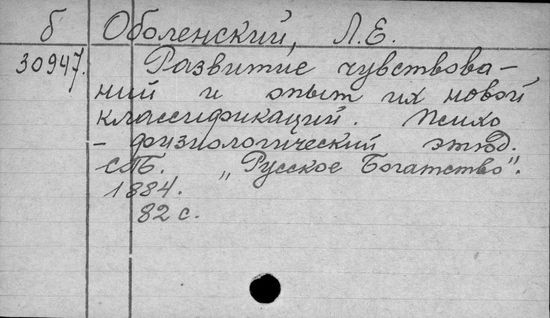 б Оболенский, Л.Е.
30947. Развитие чувствова-
ний и опыт их новой
классификаций. Психо
- физиологический этюд.
СПБ. „Русское Богатство".
1884.
82 с.